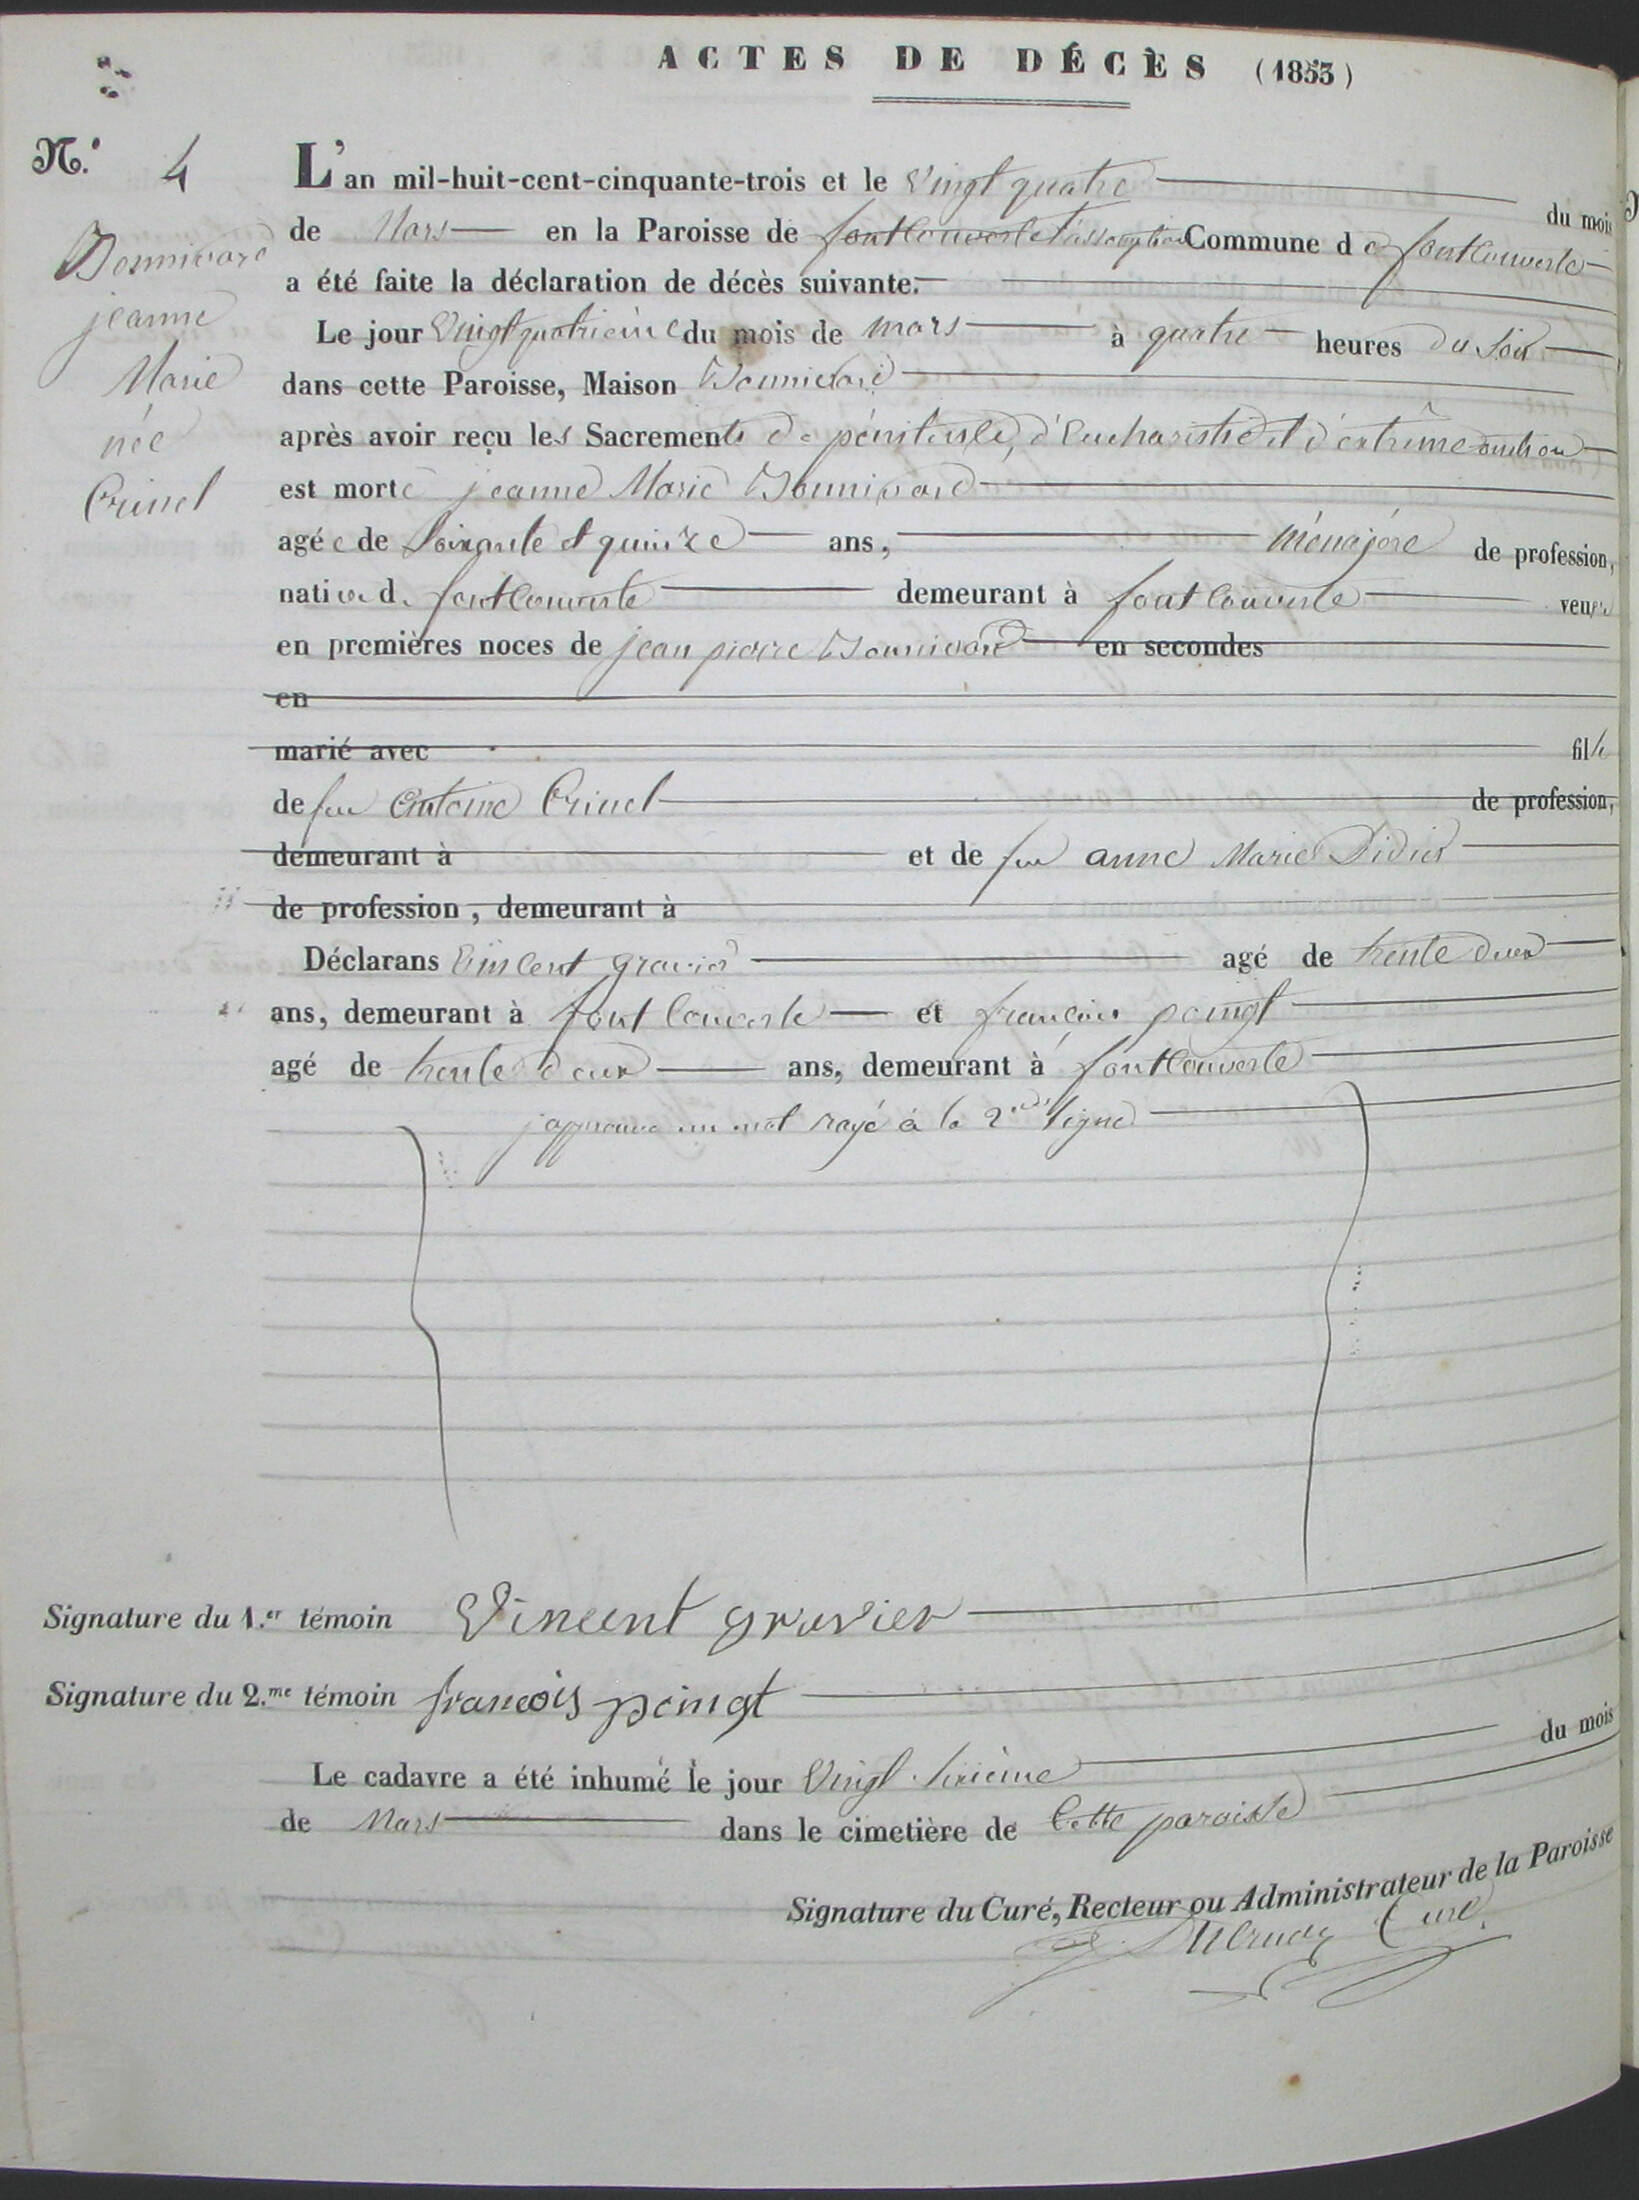 ACTES DE DÉCÈS (1853)
N.° 4
Bonnivard
jeanne
Marie
née
Crinel
L'an mil-huit-cent-cinquante-trois et le Vingt quatre du mois
de Mars en la Paroisse de fontcouverte l'assomption Commune de fontcouverte
a été faite la déclaration de décès suivante.
Le jour Vingt quatrieme du mois de mars à quatre heures du soir
dans cette Paroisse, Maison Bonnivard
après avoir reçu les Sacrements de pénitence, d'Eucharistie et d'extrême onction
est morte jeanne Marie Bonnivard
agée de soixante et quinze ans, ménajére de profession,
native d. fontcouverte demeurant à fontcouverte veuve
en premières noces de jean pierre Bonnivard en secondes
en
marié avec fille
de feu Antoine Crinel de profession,
demeurant à et de feu anne Marie Didier
de profession, demeurant à
Déclarans Vincent gravier agé de trente deux
ans, demeurant à fontcouverte et françois poingt
agé de trente deux ans, demeurant à fontcouverte
j'approuve un mot rayé à la 2.de ligne
Signature du 1.er témoin Vincent gravier
Signature du 2.me témoin francois poingt
Le cadavre a été inhumé le jour Vingt sixième du mois
de Mars dans le cimetière de Cette paroisse
Signature du Curé, Recteur ou Administrateur de la Paroisse
Curé